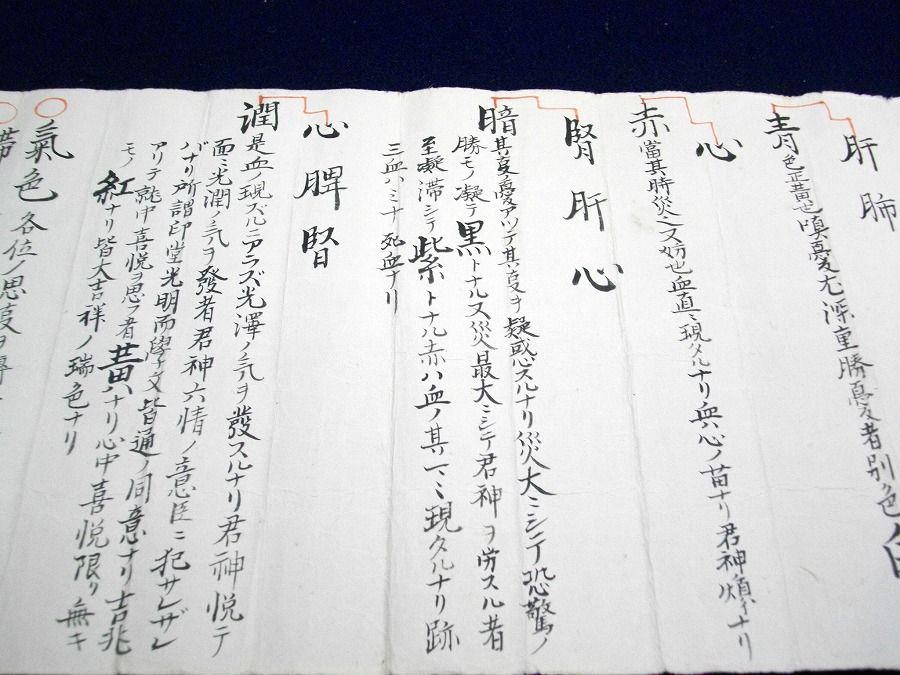 肝肺
青色正黄也嗔憂尤深重勝憂者別色白
心
赤當其時災之又妨也血直ミ現タルナリ血心ノ苗ナリ君神煩ナリ
腎肝心
暗其憂憂アツテ其憂ヲ疑惑スルナリ災大ミシテ恐驚ノ
勝モノ凝テ黒トナル又災最大ミシテ君神ヲ労スル者
至凝滞シテ紫トナル赤ハ血ノ其マヽミ現タルナリ跡
三血ハミナ死血ナリ
心脾腎
潤是血ノ現ズルニアラズ光澤ノ氣ヲ發スルナリ君神悦テ
面ミ光潤ノ氣ヲ發者君神六情ノ意臣ニ犯サレザレ
バナリ所謂印堂光明而學文皆通ノ同意ナリ吉兆
アリテ就中喜悦ヲ思フ者黄ハナリ心中喜悦限リ無キ
モノ紅ナリ皆大吉祥ノ瑞色ナリ
氣色各位ノ思憂ヲ
滞